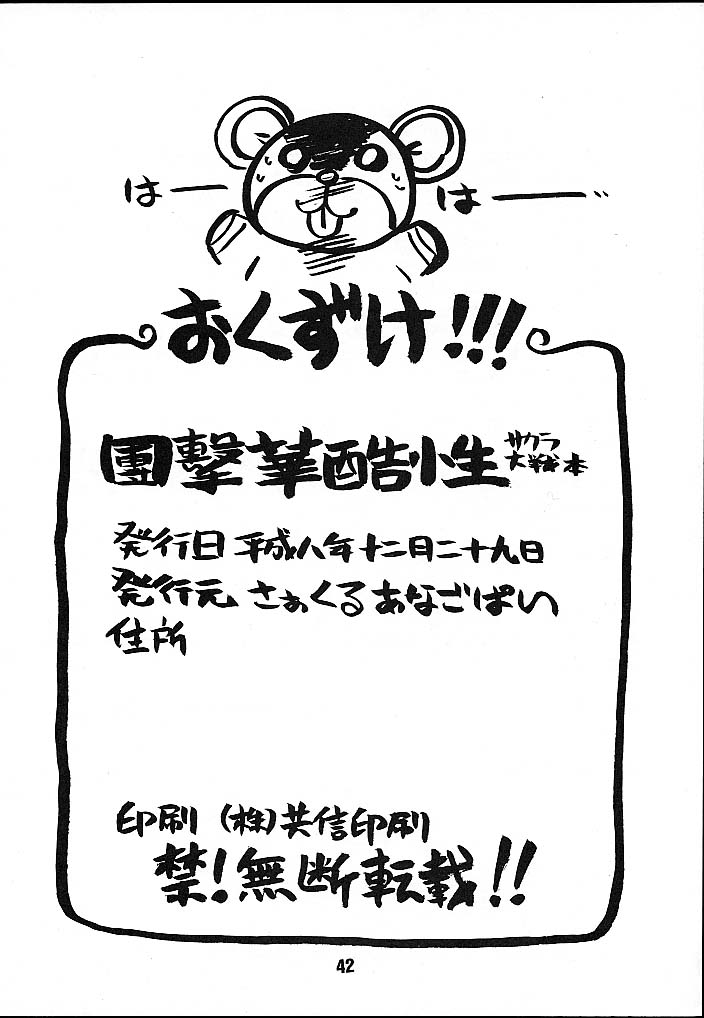 はー はー゛
おくずけ!!!
團撃華酷小生 サクラ大戦本
発行日 平成八年十二月二十九日
発行元 さぉくる あなごぱい
住所
印刷 (株)共信印刷
禁!無断転載!!
42